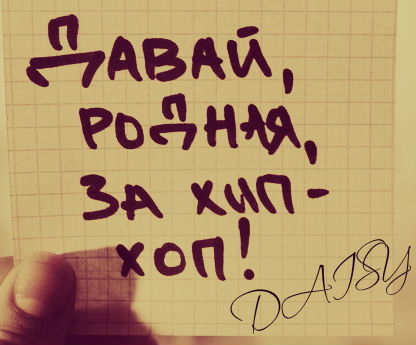 ДАВАЙ,
РОДНАЯ,
ЗА ХИП-
ХОП!
DAISY